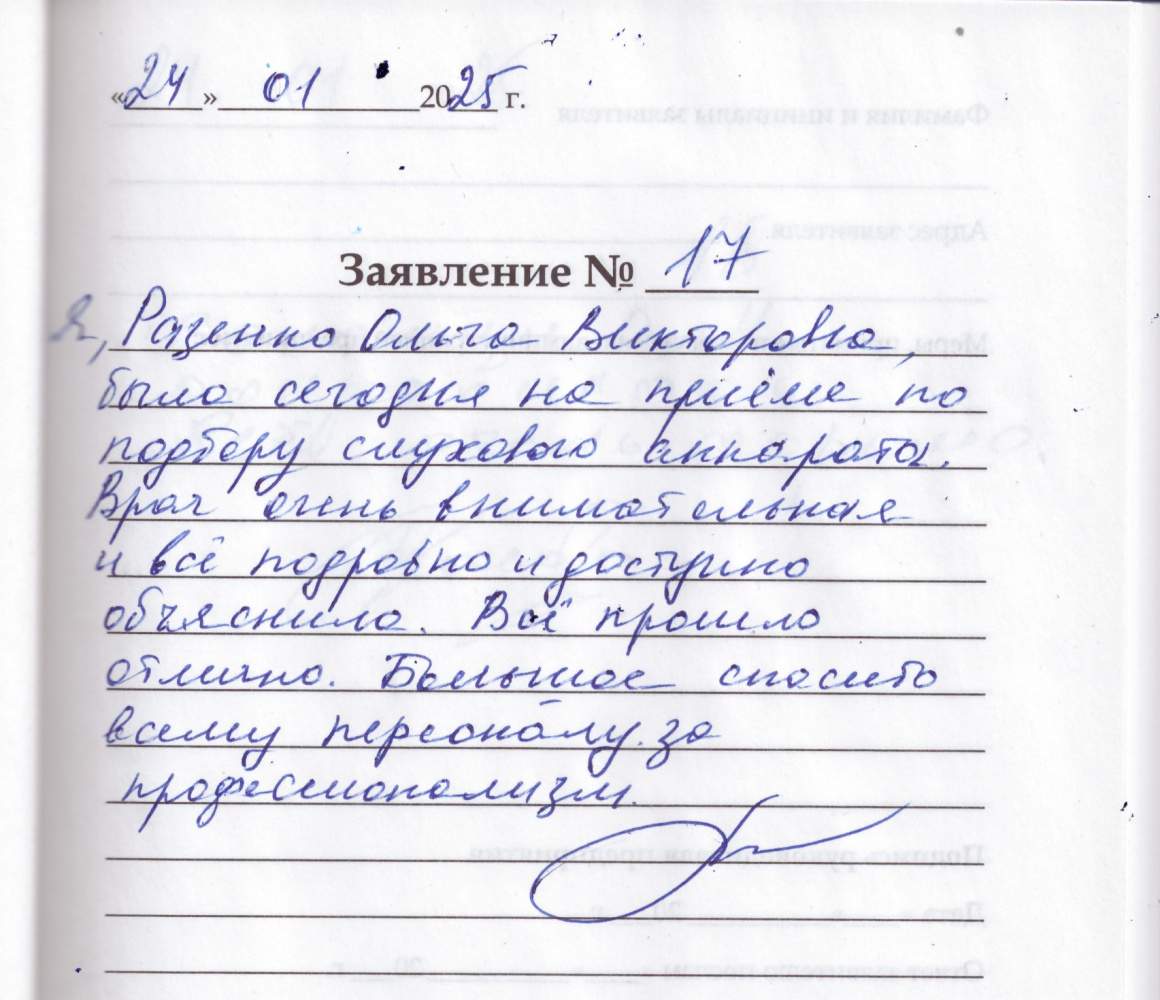 «24» 01 2025 г.
Заявление № 17
Я, Разенко Ольга Викторовна,
была сегодня на приёме по
подбору слухового аппарата.
Врач очень внимательная
и всё подробно и доступно
объяснила. Всё прошло
отлично. Большое спасибо
всему персоналу за
профессионализм.